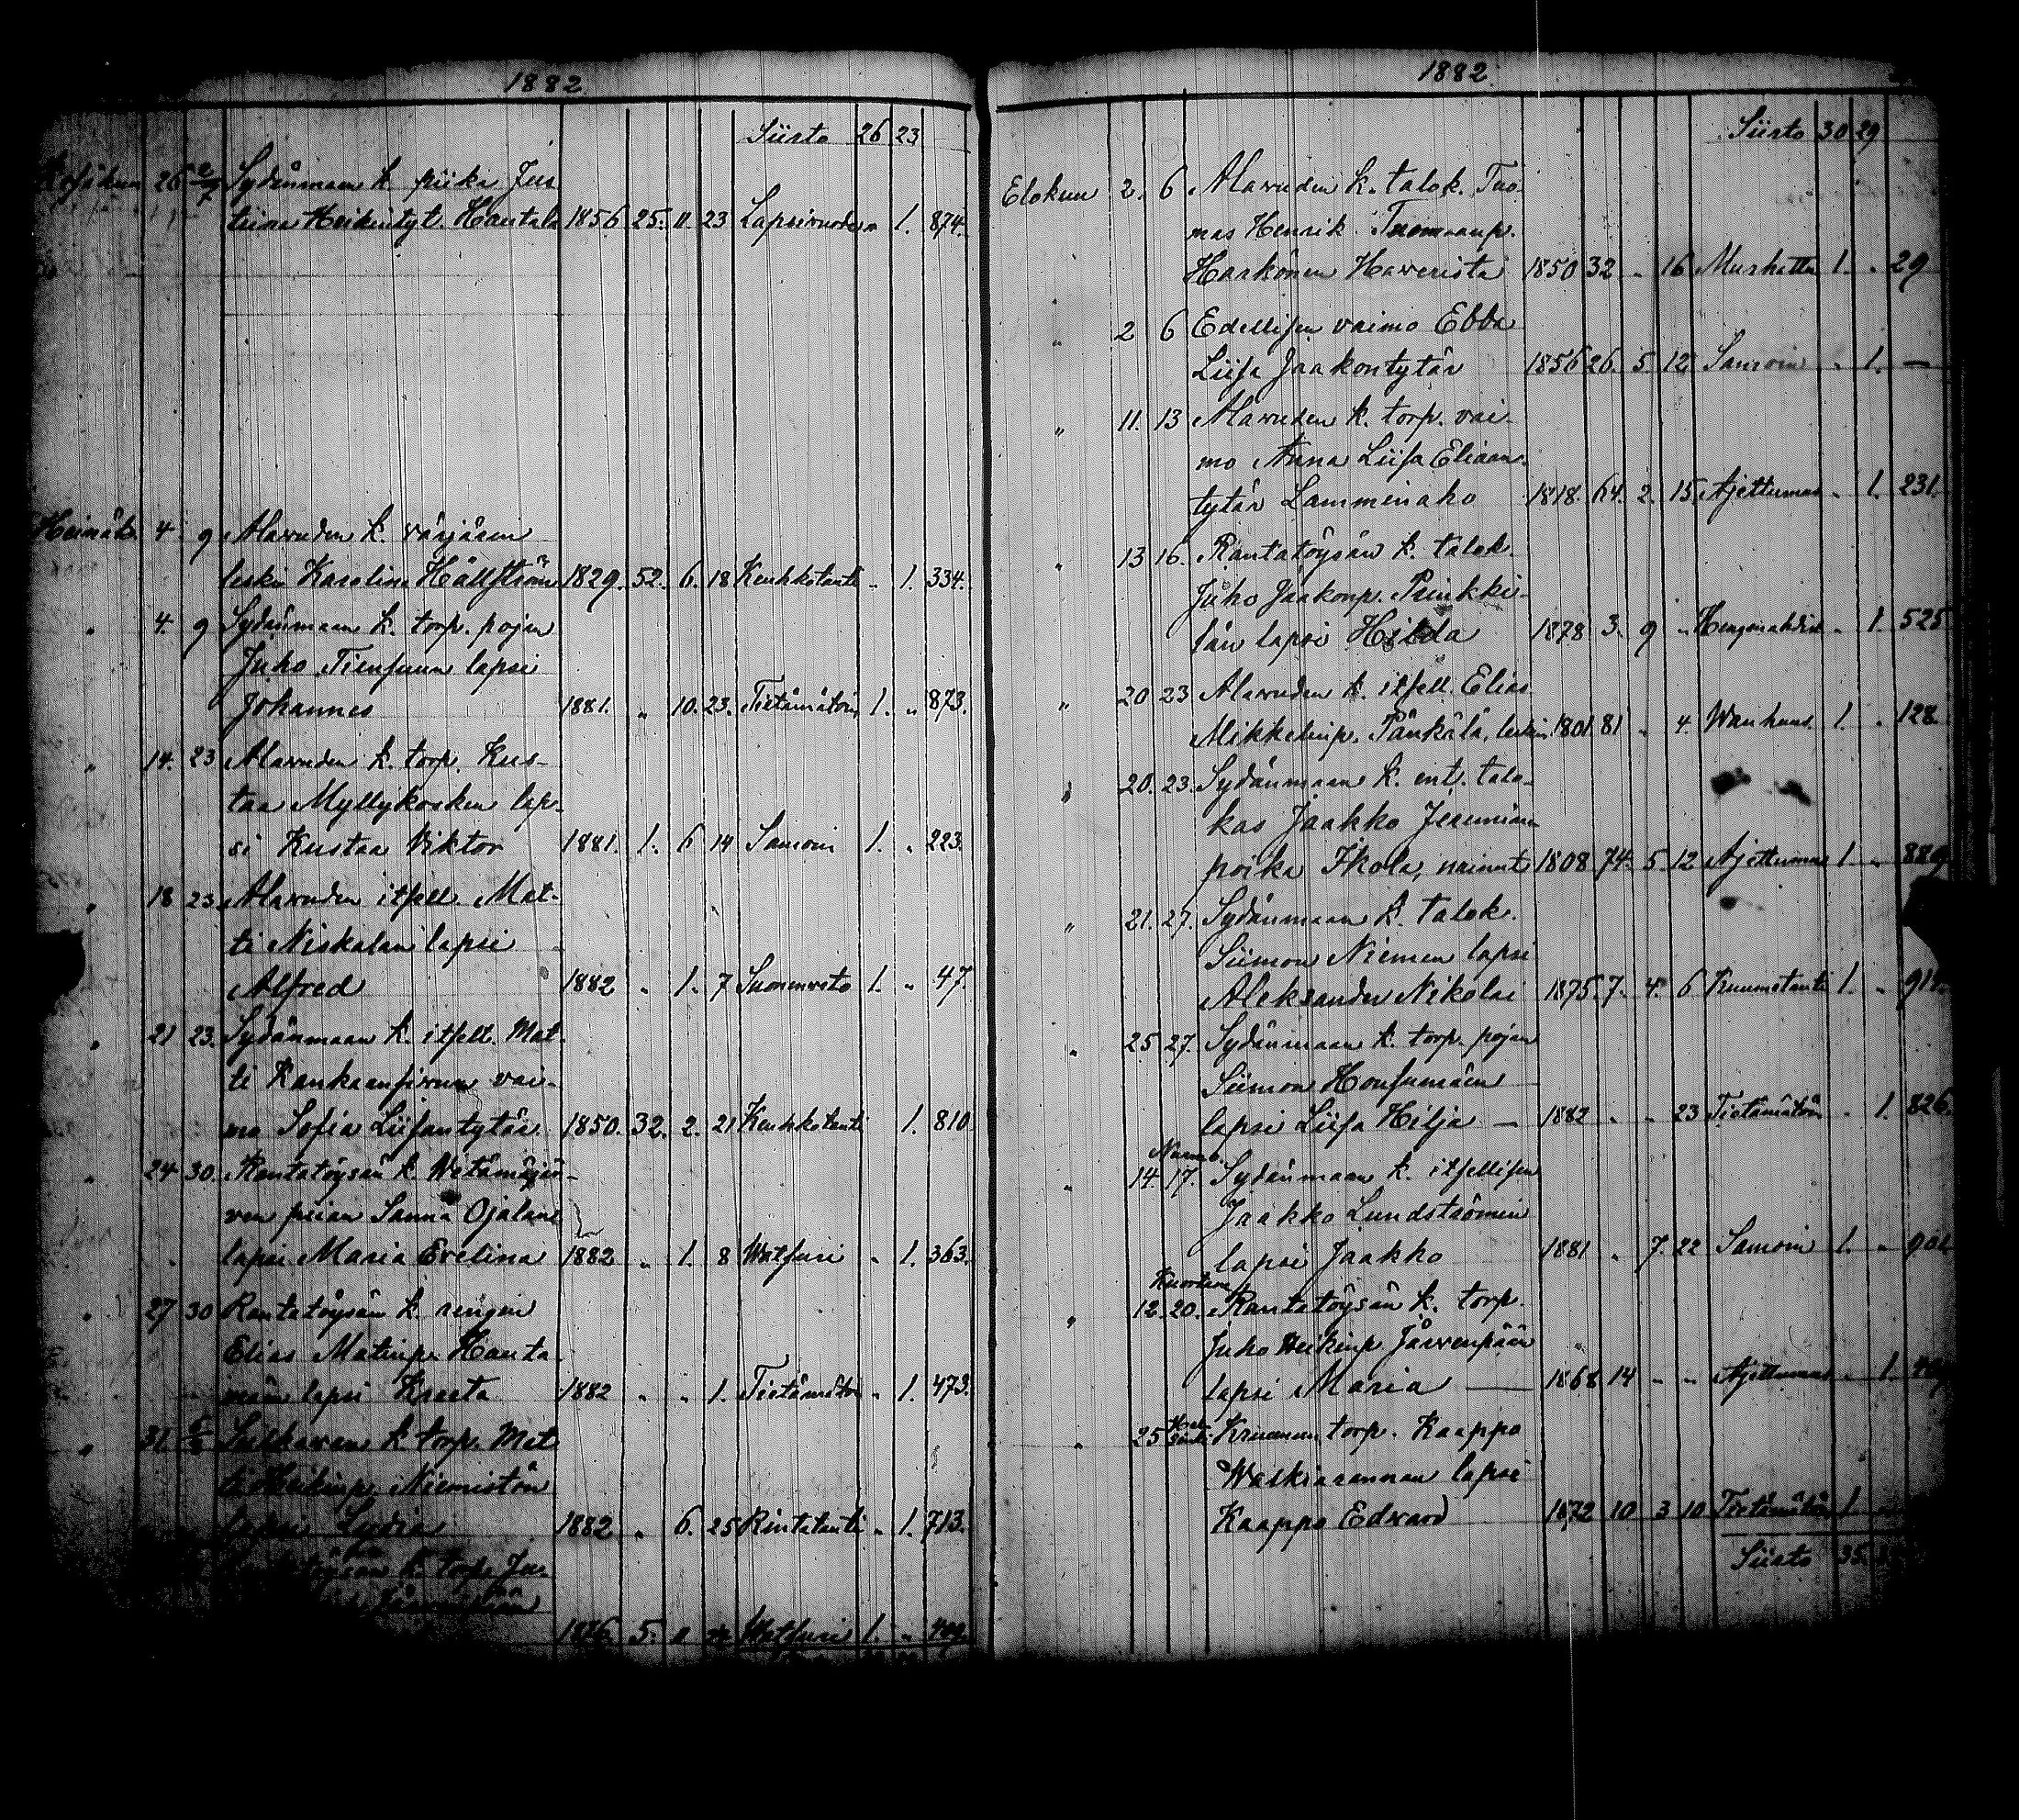 1882
Siirto 26 23
26 2/7 Sydänmaan k. piika Jus
tiina Heikintyt. Hautala 1856 25. 11. 23 Lapsivuode „ 1. 874.
Heinäk. 4 9 Alavuden k. värjärin
leski Karolina Hällström 1829. 52. 6. 18 Keuhkotauti „ 1. 334.
„ 4. 9 Sydänmaan k. torp. pojan
Juho Tiensuun lapsi
Johannes 1881. „ 10. 23. Tietämätön 1. „ 873.
„ 14. 23 Alavuden k. torp. Kus-
taa Myllykosken lap-
si Kustaa Viktor 1881. 1. 6 14 Samoin 1. „ 223.
„ 18 23. Alavuden itsell. Mat-
ti Niskalan lapsi
Alfred 1882 „ 1. 7 1. „ 47.
„ 21 23. Sydänmaan k. itsell. Mat-
ti Kankaanpirun vai-
mo Sofia Liisantytär 1850. 32. 2. 21 Keuhkotauti 1. 810
„ 24 30. Rantatöysän k.
ven piian Sanna Ojalan
lapsi Maria Evelina 1882 „ 1. 8 Watsuri „ 1. 363.
„ 27 30 Rantatöysän k. rengin
Elias Matinp. Hauta
mäen lapsi Kreeta 1882 „ „ 1. Tietämätön „ 1. 473.
„ 31 k. torp. Mat
ti Heikinp. Niemistön
lapsi Lydia 1882 „ 6. 25 Rintatauti „ 1. 713.
k. torp. Ju-
1876. 5. 11 Watsuri 1. „
1882
Siirto 30 29
Elokuu 2. 6 Alavuden k. talok. Tuo
mas Henrik Tuomaanp.
Haakönen Haverista 1850 32 „ 16 Murhattu 1. „ 29
„ 2 6 Edellisen vaimo Ebba
Liisa Jaakontytär 1856 26. 5. 12 Samoin „ 1. —
„ 11. 13 Alavuden k. torp. vai-
mo Anna Liisa Eliaan-
tytär Lamminaho 1818. 64. 2. 15 Ajettumus „ 1. 231.
„ 13 16. Rantatöysän k. talok.
Juho Jaakonp. Prinkki-
län lapsi Hilda 1878 3. 9 „ Hengenahdist. „ 1. 525
„ 20 23 Alavuden k. itsell. Elias
Mikkelinp. Pänkälä, leski 1801 81 „ 4. Wanhuus 1. „ 128.
„ 20. 23. Sydänmaan k. ent. talo-
kas Jaakko Jeremiaan
poika Ikola, nainut 1808 74. 5. 12 Ajettumus 1 „
„ 21. 27. Sydänmaan k. talok.
Siimon Niemen lapsi
Aleksander Nikolai 1875. 7. 4. 6 Kuumetauti 1. „
„ 25 27. Sydänmaan k. torp. pojan
Siimon Honsumäen
lapsi Liisa Hilja — 1882 „ „ 23 Tietämätön „ 1. 826.
„ 14. 17. Sydänmaan k. itsellisen
Jaakko Lundströmin
lapsi Jaakko 1881 „ 7. 22 Samoin 1. „
Kuortane
„ 12. 20. Rantatöysän k. torp.
Juho Heikinp. Järvenpään
lapsi Maria — 1868 14 „ „ Ajettumus „ 1.
„ 25 Kruunun torp. Kaappo
Waskiarannan lapsi
Kaappo Edvard 1872 10 3 10 Tietämätön 1.
Siirto 35.